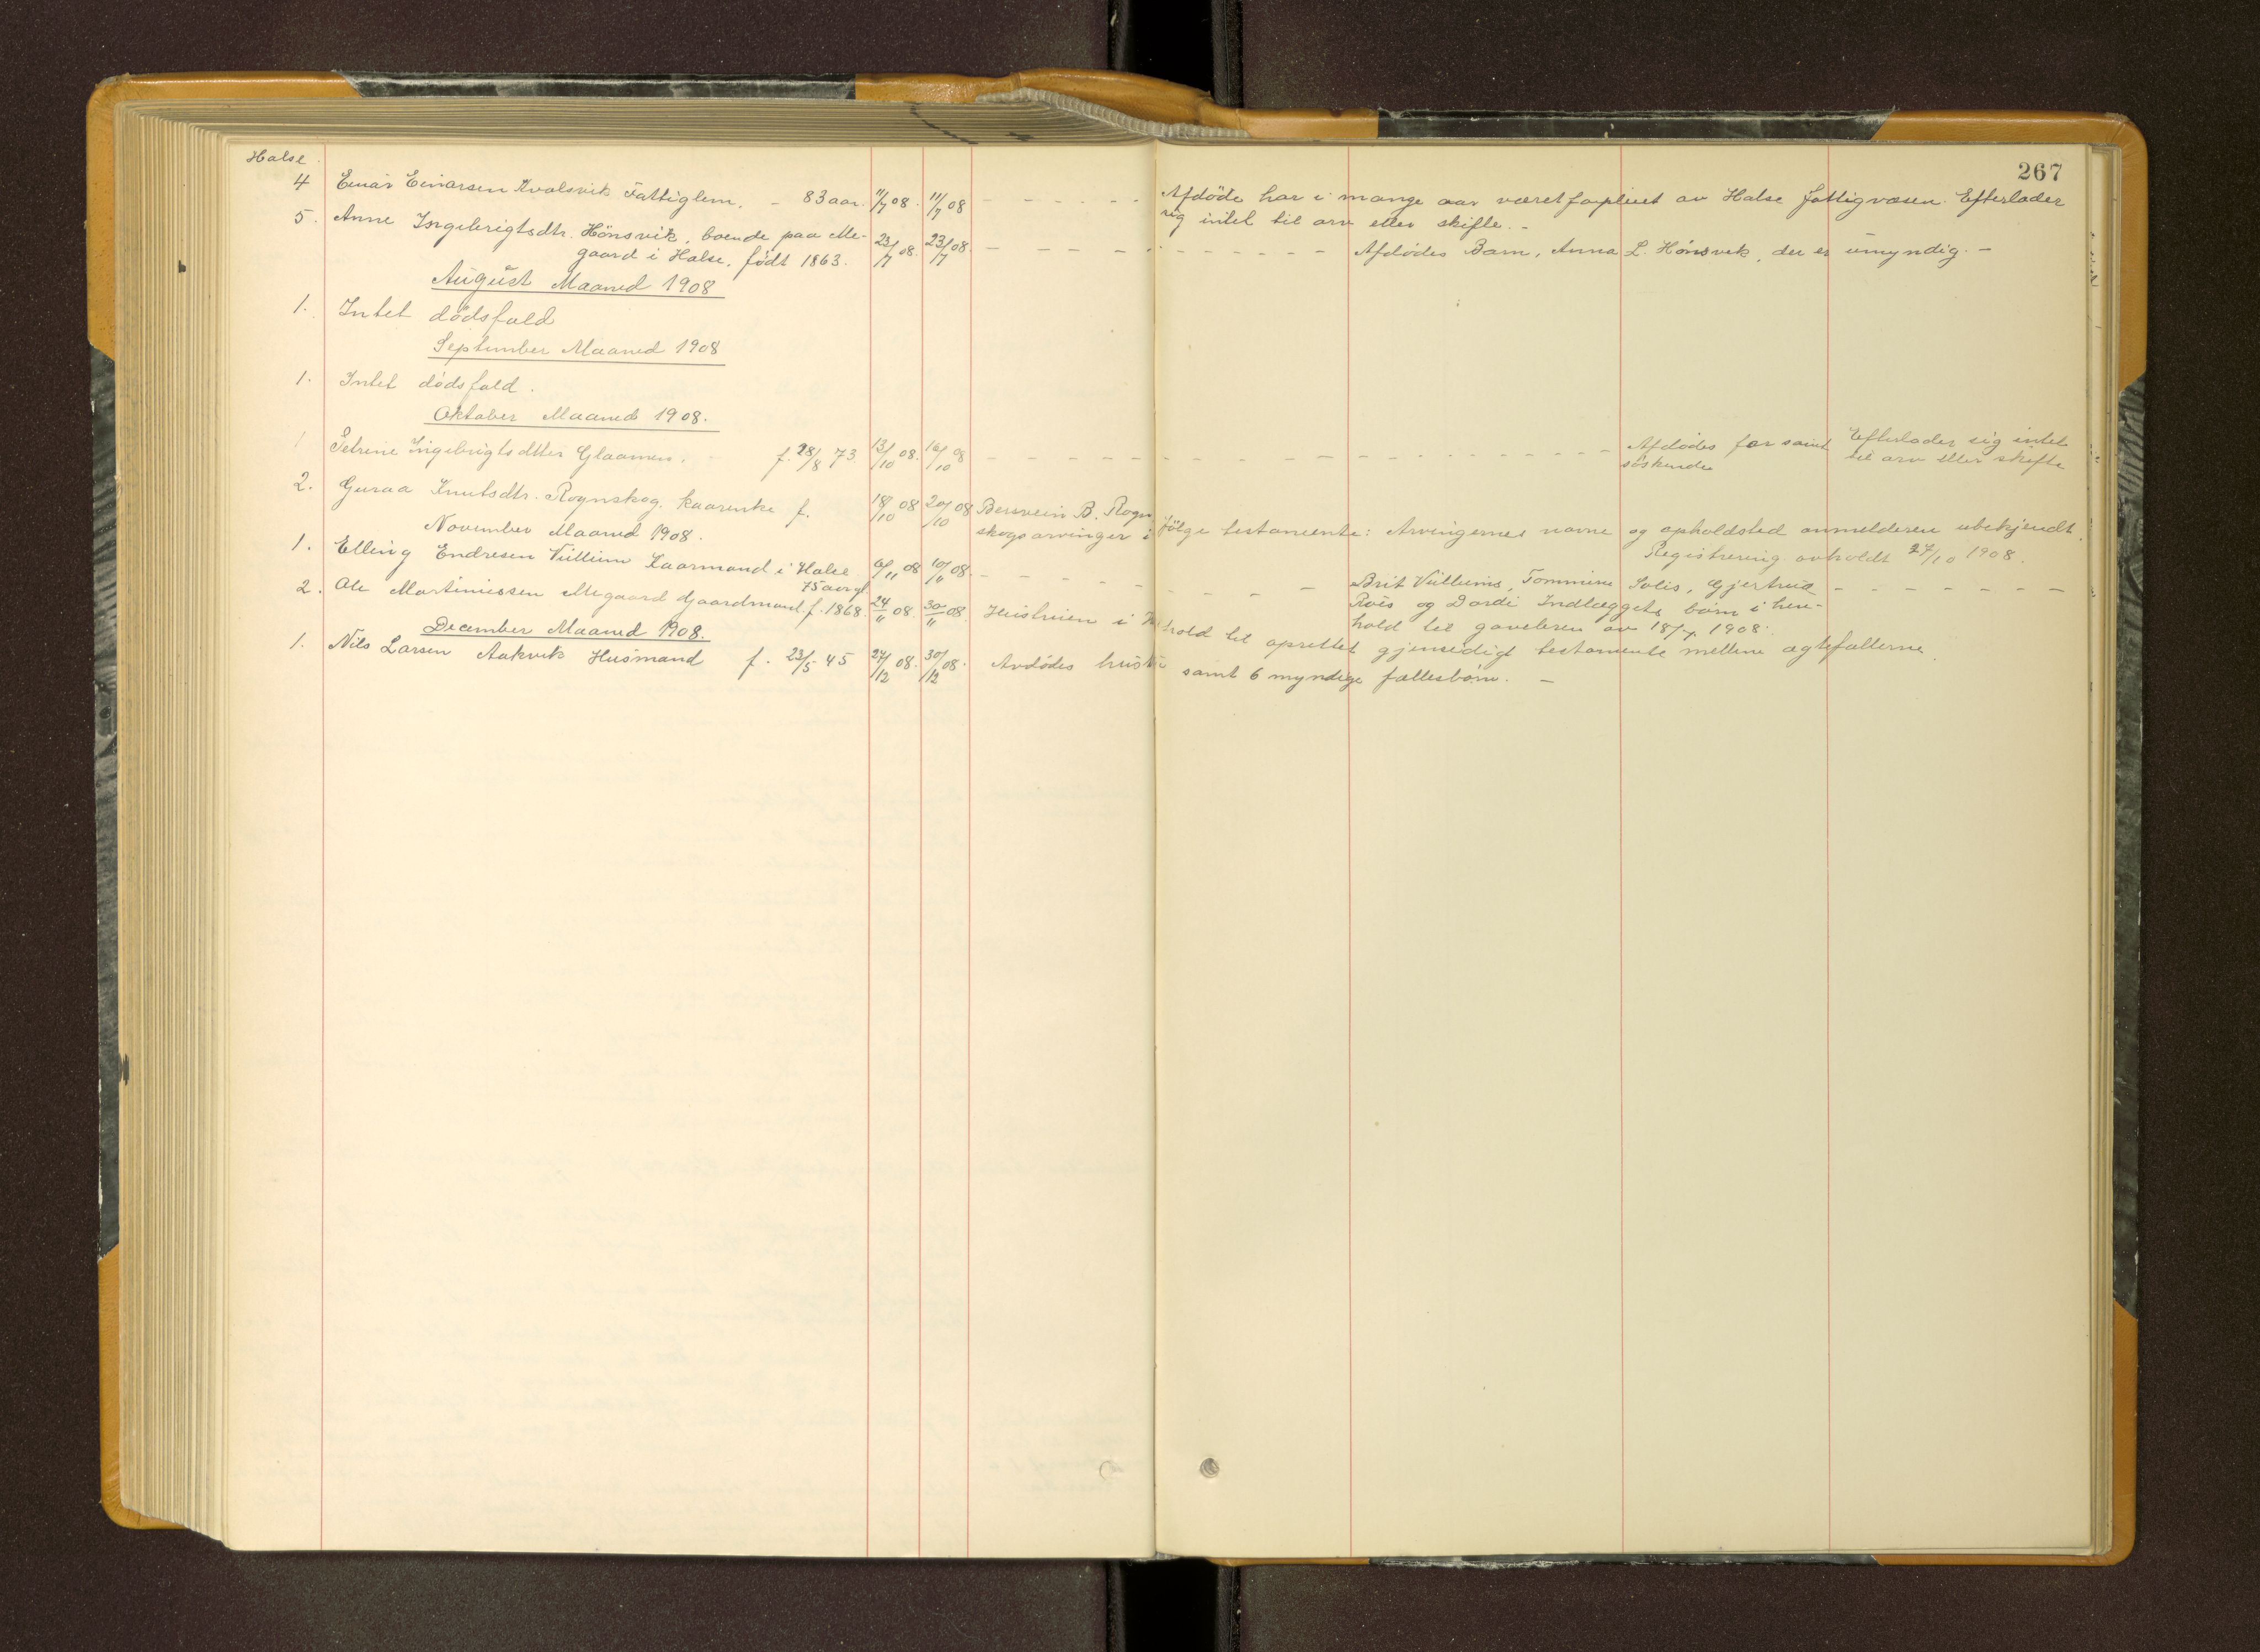 267
Halse
4 Einar Einarsen Kvalsvik Fattiglem. - 83 aar. 11/7 08. 11/7 08 - - - - - - Afdöde har i mange aar været forpleiet av Halse fattigvæsen. Efterlader
sig intet til arv eller skifte. -
5. Anne Ingebrigtsdtr. Hönsvik, boende paa Me- 23/7 08. 23/7 08. - - - - - - - - - - Afdödes Barn, Anna L. Hönsvik, der er umyndig. -
gaard i Halse. födt 1863.
August Maaned 1908
1. Intet dödsfald
September Maaned 1908
1. Intet dödsfald.
Oktober Maaned 1908.
1 Petrine Ingebrigtsdtter Glaamen. - f. 28/8 73. 13/10 08. 16/10 08 - - - - - - - - - - Afdödes far samt Efterlader sig intet
söskende til arv eller skifte
2. Guraa Knutsdtr. Rognskog. kaarenke f. 18/10 08 20/10 08 Bersvein B. Rogn
skogs arvinger i fölge testamente: Arvingernes navne og opholdsted anmelderen ubekjendt.
Registrering avholdt 27/10 1908.
November Maaned 1908.
1. Elling Endresen Vullum Kaarmand i Halse. 6/11 08 10/11 08. - - - - - - - - Brit Vullums, Tommine Solis, Gjertrud - - - - - -
75 aar gl. Röes og Dordi Indlæggets börn i hen-
hold til gavebrev av 18/7 1908.
2. Ole Martinussen Megaard Gaardmand f. 1868. 24/11 08. 30/11 08. Hustruen i hold til oprettet gjensidigt testamente mellem ægtefællerne.
December Maaned 1908.
1. Nils Larsen Aakvik Husmand f. 23/5 45 27/12 08. 30/12 08. Avdödes hustru samt 6 myndige fællesbörn. -